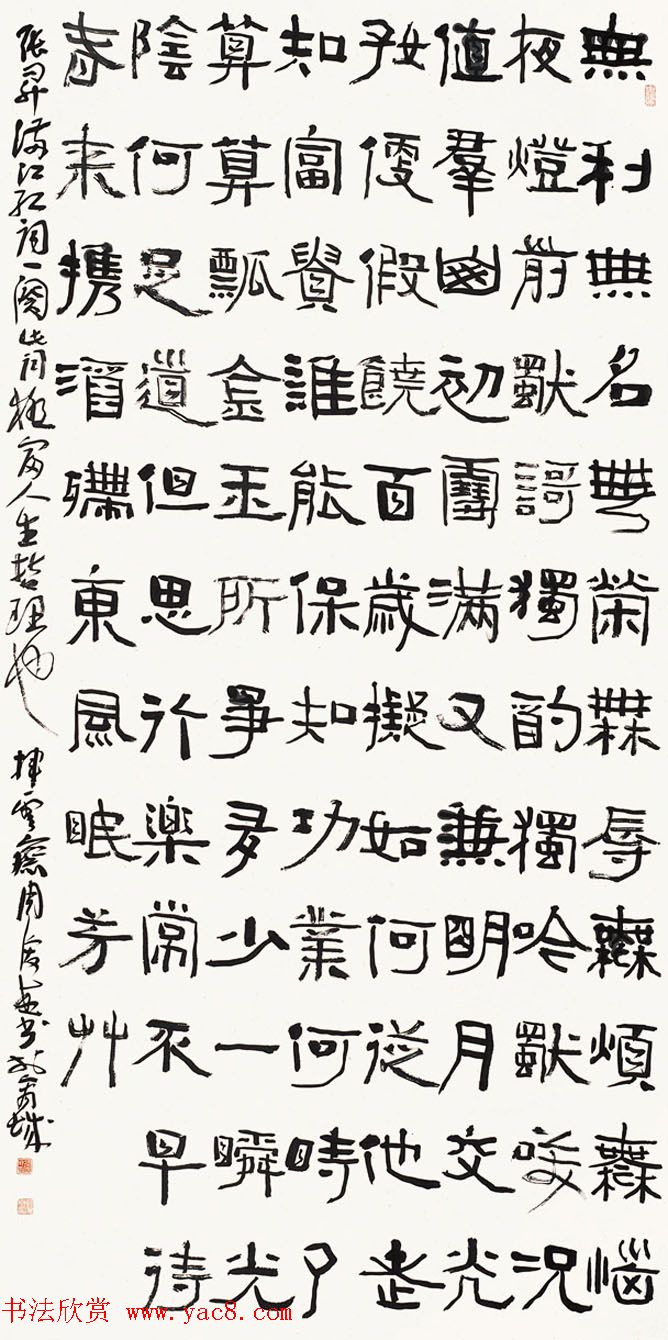 無利無名無榮無辱無煩無惱
夜燈前獨謌獨酌獨吟獨咲況
值羣山初雪滿又兼明月交光
好便假饒百歲擬如何從他老
知富貴誰能保知功業何時了
算簞瓢金玉所爭多少一瞬光
陰何足道但思行樂常不早待
春來携酒殢東風眠芳草
張昪滿江紅詞一闋皆極富人生哲理也
書法欣赏 www.yac8.com